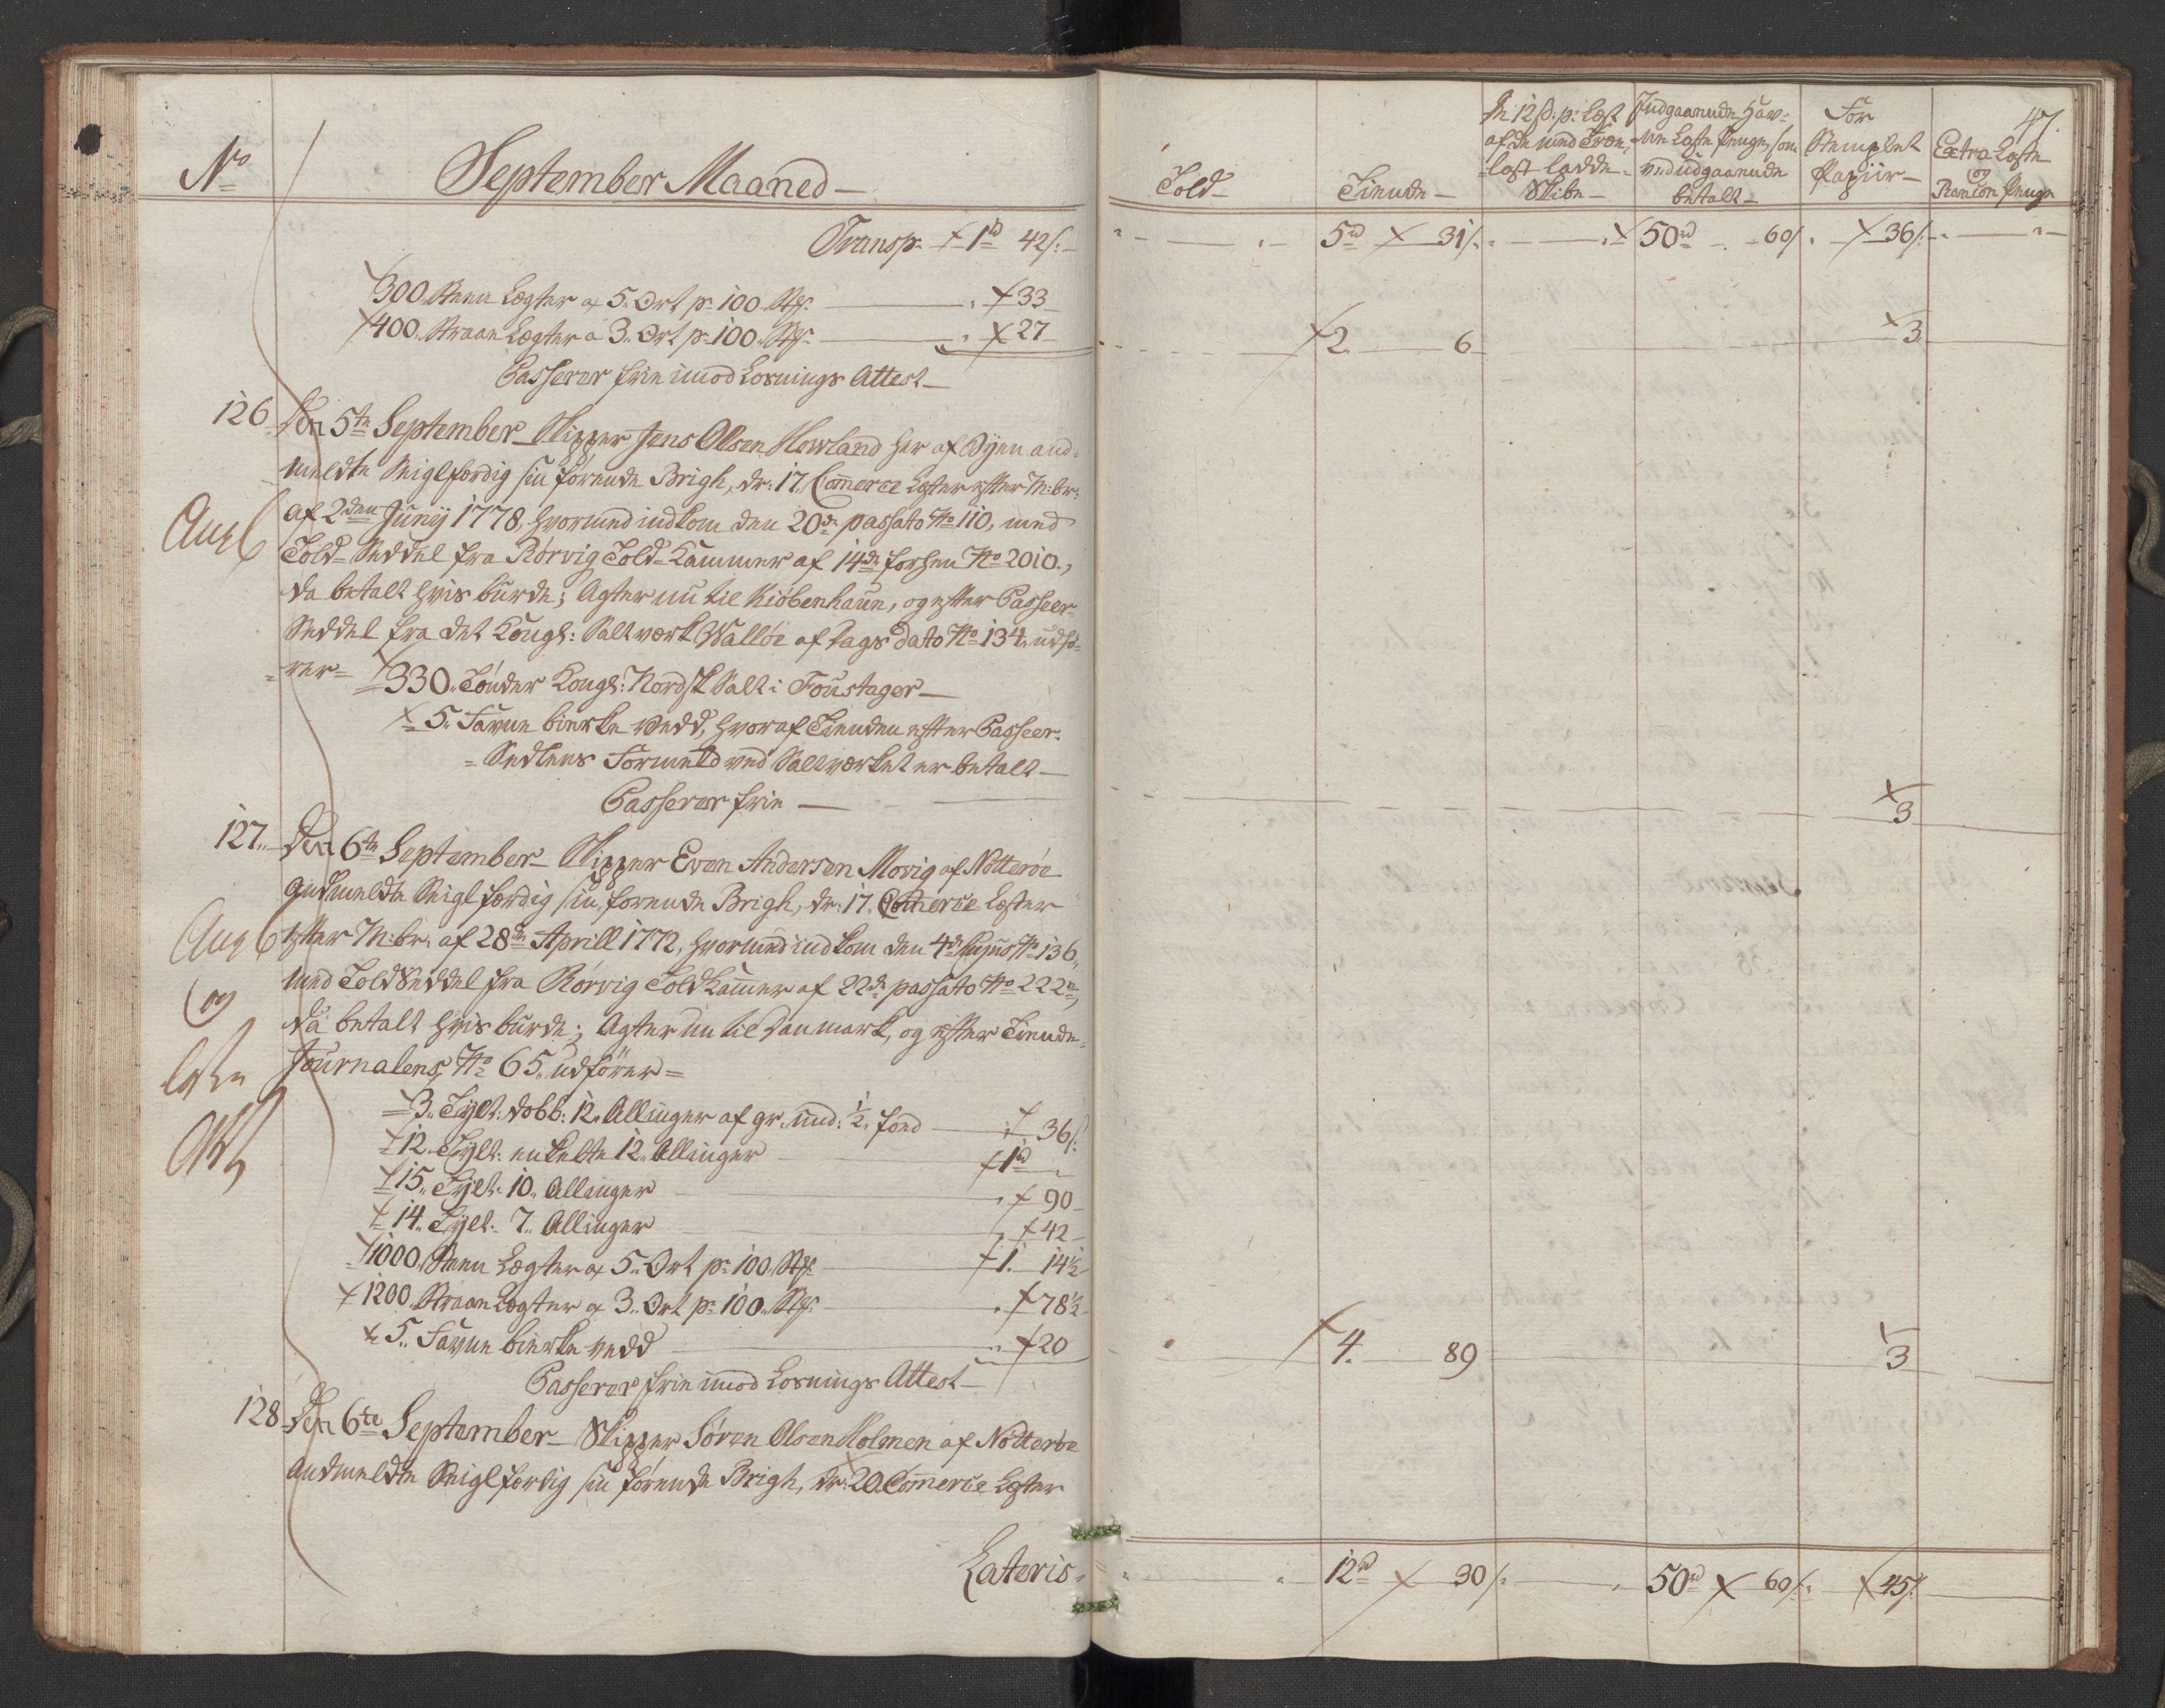 No
September Maaned
Transp. 1rd 42s.
300 Steen Lægter a 5 Ort pr. 100 Stk. 33
400 Straae Lægter a 3 Ort pr. 100 Stk. 27
Passerer frie imod Losnings Attest
126 Den 5te September Skipper Jens Olsen Howland her af Byen and-
meldte Seiglfærdig sin førende Brigh, dr: 17 Commerce Læster efter M:br:
af 2den Junij 1778, hvormed indkom den 20de passato No 110, med
Told-Seddel fra Rørvig Told-Kammer af 14de forhen No 2010,
da betalt hvis burde; Agter nu til Kiøbenhaun, og efter Passeer-
Seddel fra det Kongl: Saltværk Walløe af Dags dato No 134 udfø-
rer
330 Tønder Kongl: Nordsk Salt i Foustager
5 Favne bierke vedd, hvoraf Tienden efter Passeer-
Sedlens Formeld ved Saltværket er betalt
Passerer frie
127 Den 6te September Skipper Even Andersen Movig af Nøtterøe
andmeldte Seiglfærdig sin førende Brigh, dr: 17 Commerce Læster
efter M:br: af 28de Aprill 1772, hvormed indkom den 4de hujus No 136
med Told Seddel fra Rørvig Told Kammer af 22de passato No 222,
da betalt hvis burde; Agter nu til Danmark, og efter Tiende-
Journalens No 65 udfører
3 Tylt: dobb: 12 Allinger af gr: und: 1/2 foed 36s:
12 Tylt: enkelte 12 Allinger 1rd
15 Tylt: 10 Allinger 90
14 Tylt: 7 Allinger 42
1000 Steen Lægter a 5 Ort pr. 100 Stk. 1. 14 1/2
1200 Straae Lægter a 3 Ort pr. 100 Stk. 78 1/2
5 Favne bierke vedd 20
Passerer frie imod Losnings Attest
128 Den 6te September Skipper Søren Olsen Holmen af Nøtterøe
andmeldte Seiglfærdig sin førende Brigh, dr: 20 Commerce Læster
Lateris
47.
Told
Tiende
In 12 s. pr: Læst
af de med Træe-
last ladde
Skibe
Indgaaende Hav-
ne Læste Penge, som
ved udgaaende
betalt
For
Stemplet
Papiir
Extra Læste
og
Rancon Penge
5rd 31s. 50rd 60s. 36s.
2. 6 3
3
4. 89 3
12rd 30s. 50rd 60s. 45s.